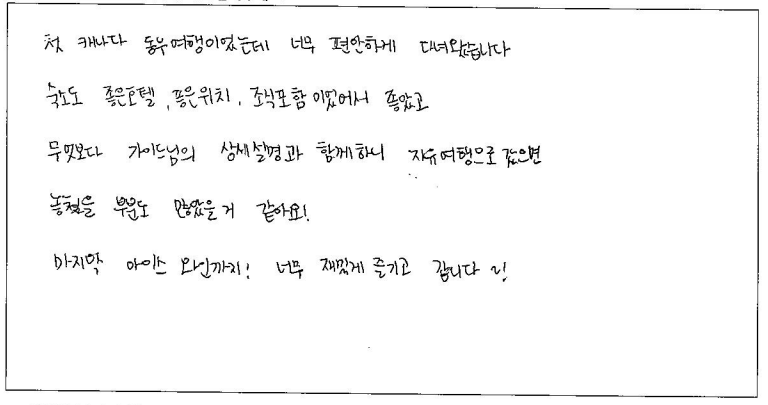 첫 캐나다 동부여행이었는데 너무 편안하게 다녀왔습니다
숙소도 좋은호텔, 좋은위치, 조식포함이었어서 좋았고
무엇보다 가이드님의 상세설명과 함께하니 자유여행으로 갔으면
놓쳤을 부분도 많았을 거 같아요!
마지막 아이스 와인까지! 너무 재밌게 즐기고 갑니다~!